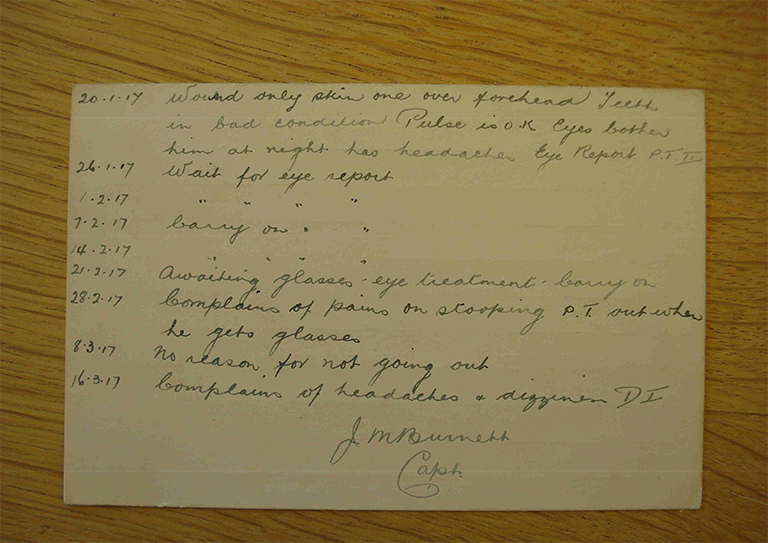 20.1.17 Wound only skin one over forehead Teeth
in bad condition Pulse is O.K Eyes bother
him at night has headaches Eye Report P.T II
26.1.17 Wait for eye report
1.2.17 " " " "
7.2.17 Carry on " "
14.2.17 " " "
21.2.17 Awaiting glasses - eye treatment - Carry on
28.2.17 Complains of pains on stooping P.T. out when
he gets glasses
8.3.17 No reason for not going out
16.3.17 Complains of headaches & dizziness D I
J. M Burnett
Capt.